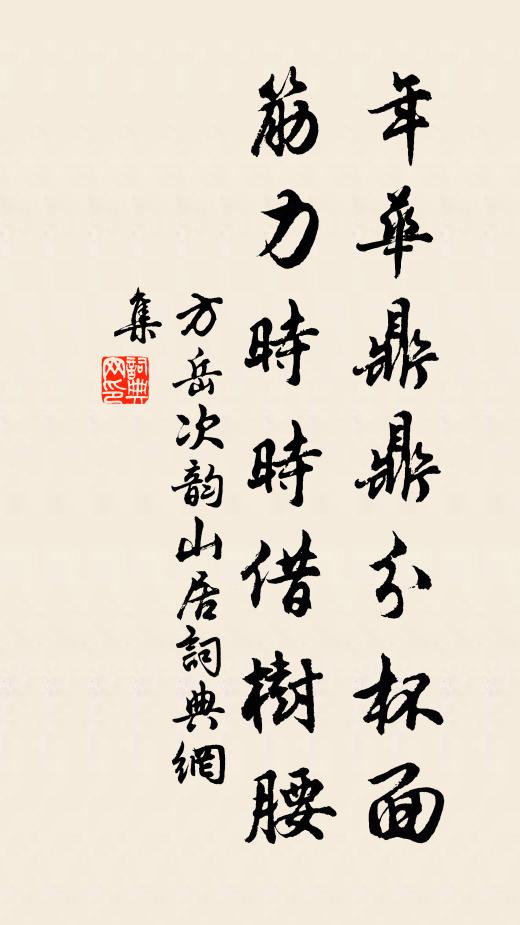 年華鼎鼎分杯面
筋力時時借樹腰
方岳次韵山居詞典網
集
詞典網印